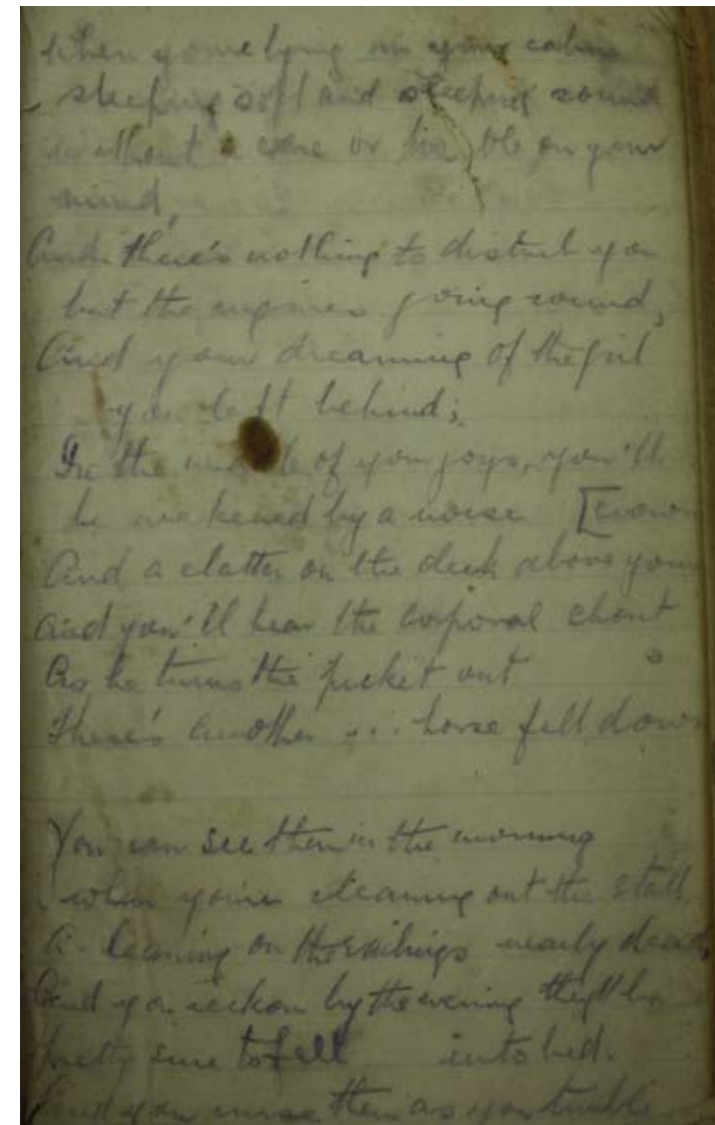 When you're lying in your cabin
sleeping soft and sleeping sound
without a care or trouble on your
mind,
And there's nothing to disturb you
but the engines going round,
And your dreaming of the girl
you left behind;
In the middle of your joys, you'll
be wakened by a noise [crown
And a clatter on the deck above your
And you'll hear the corporal shout
As he turns the picket out
There's another ... horse fell down
You can see them in the morning
when you're cleaning out the stall
A-leaning on the railings nearly dead,
And you reckon by the evening they'll be
pretty sure to fall into bed.
And you curse them as you tumble